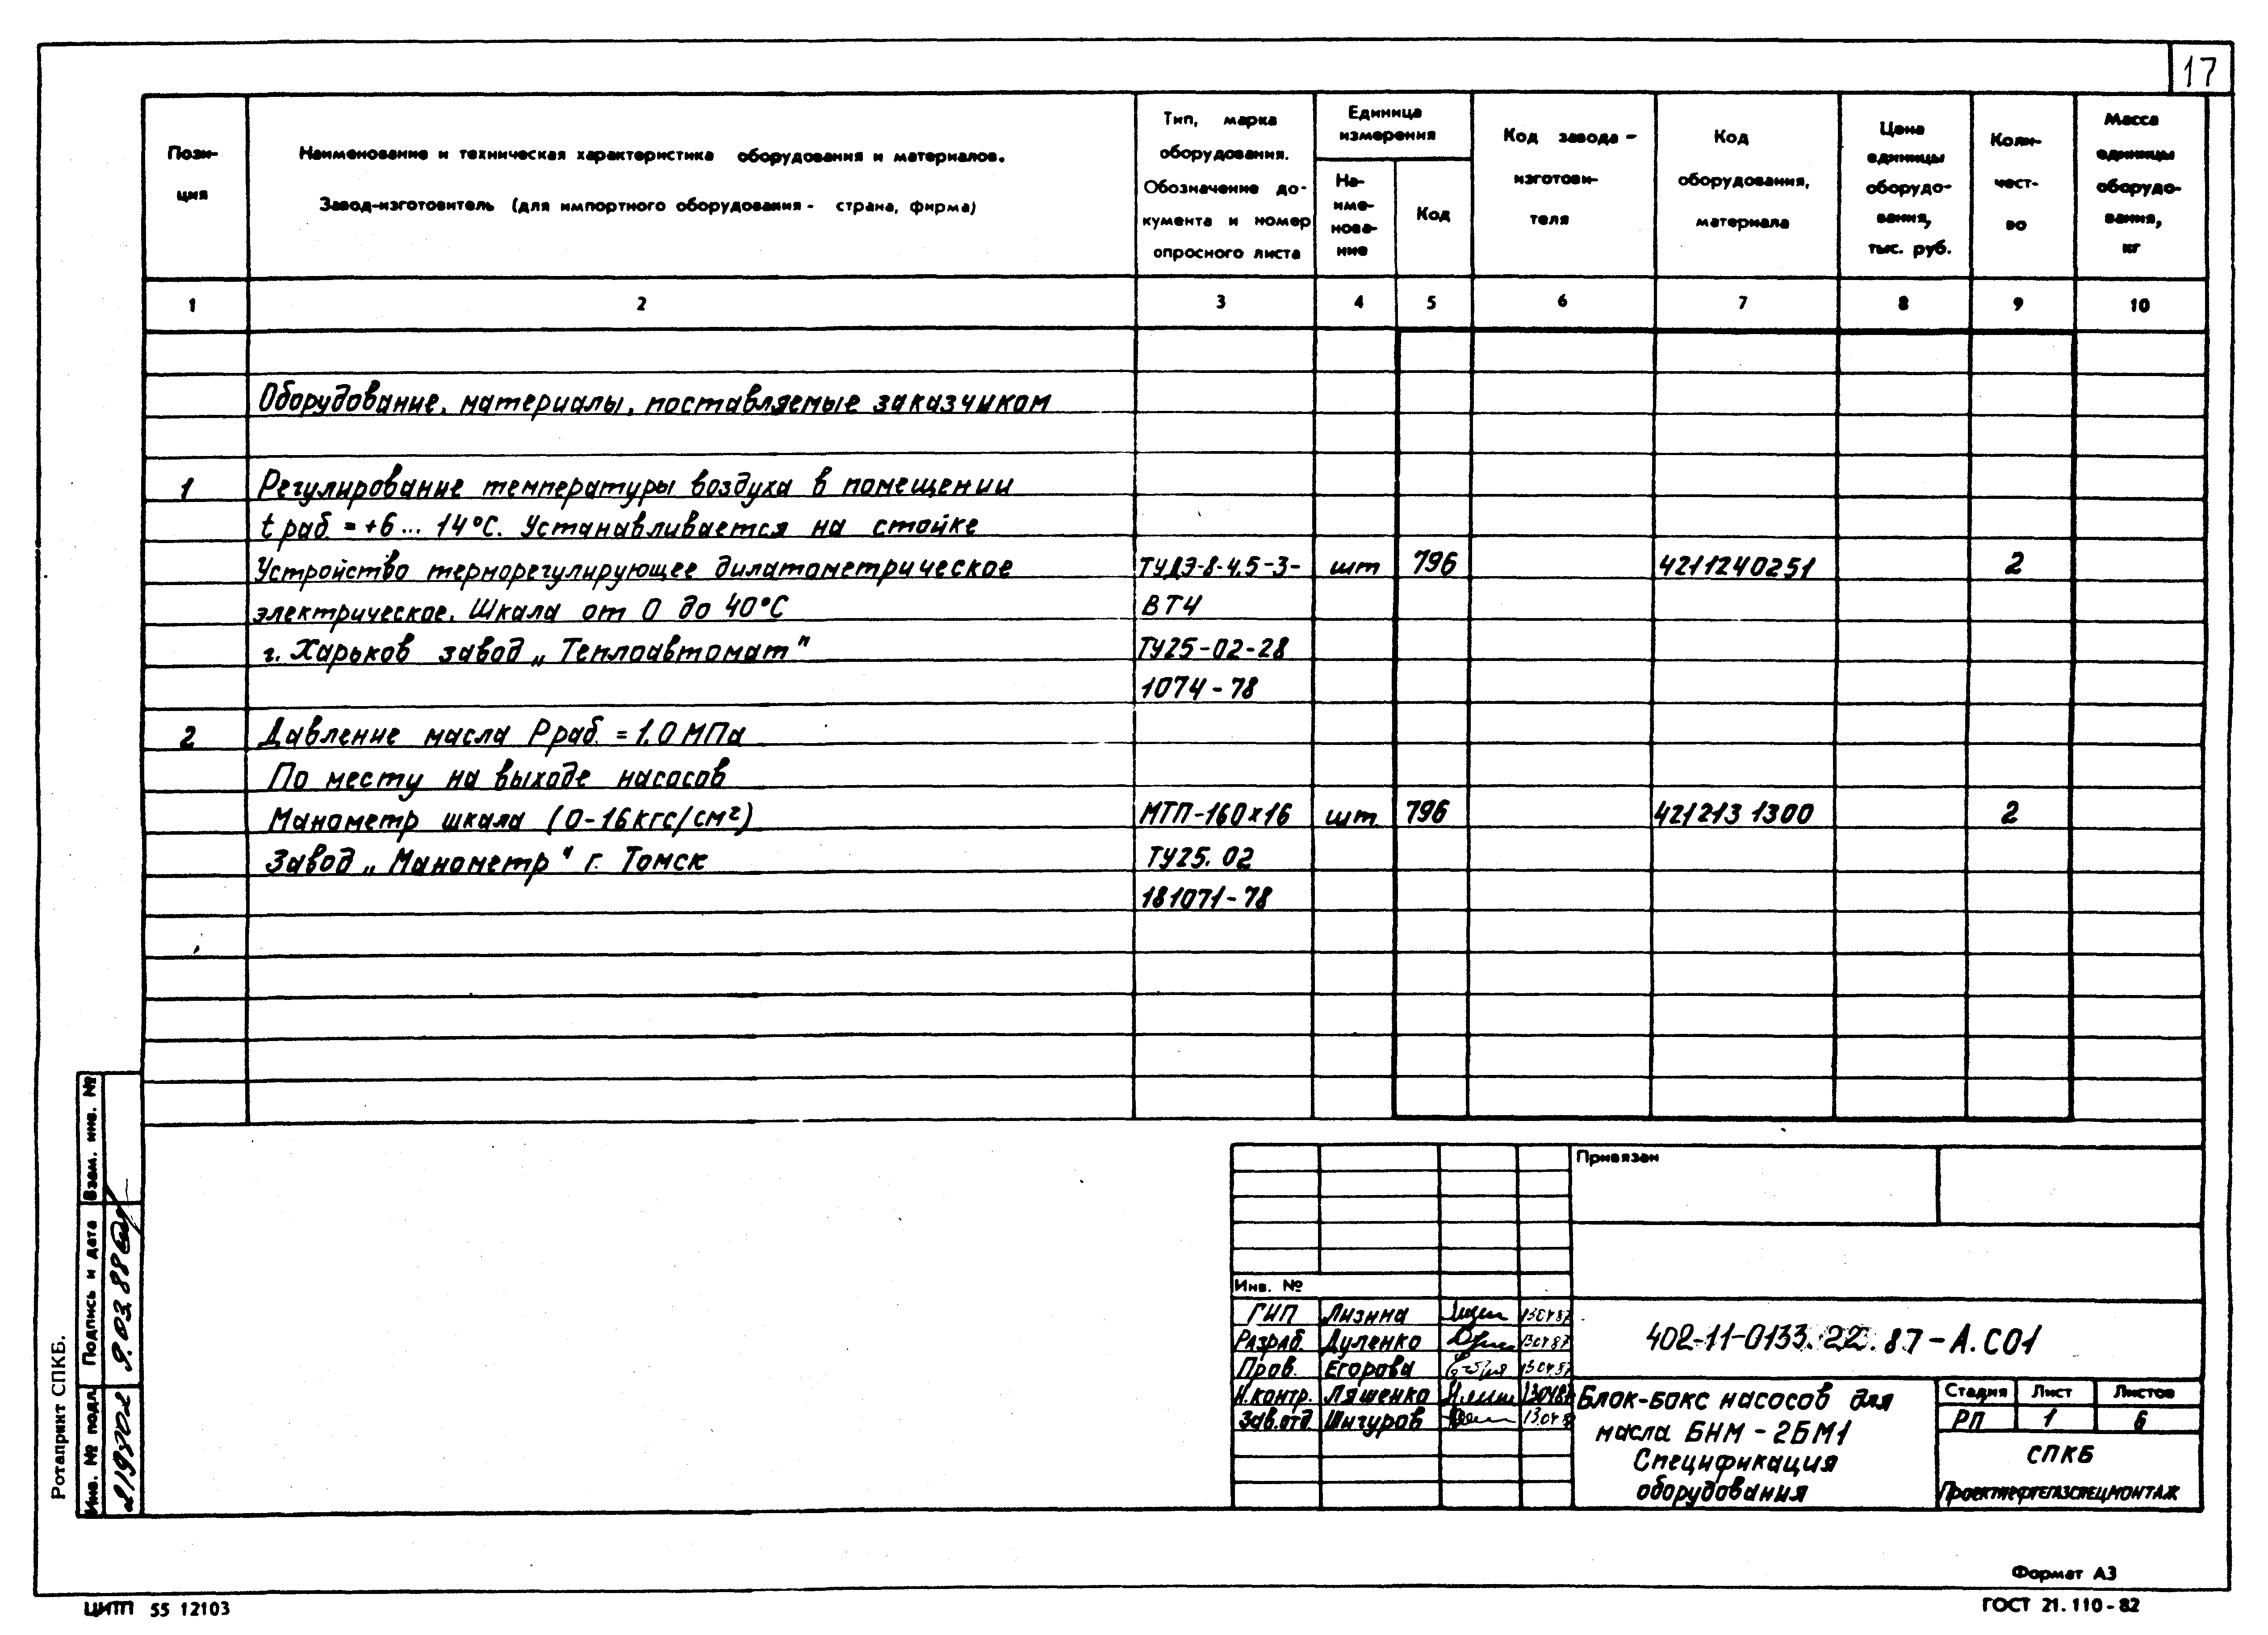 17
Пози-
ция
Наименование и техническая характеристика оборудования и материалов.
Завод-изготовитель (для импортного оборудования - страна, фирма)
Тип, марка
оборудования.
Обозначение до-
кумента и номер
опросного листа
Единица
измерения
На-
име-
нова-
ние
Код
Код завода-
изготови-
теля
Код
оборудования,
материала
Цена
единицы
оборудо-
вания,
тыс. руб.
Коли-
чест-
во
Масса
единицы
оборудо-
вания,
кг
1 2 3 4 5 6 7 8 9 10
Оборудование, материалы, поставляемые заказчиком
1 Регулирование температуры воздуха в помещении
t раб. = +6... 14°С. Устанавливается на стойке
Устройство терморегулирующее дилатометрическое ТУДЭ-8-4.5-3- шт 796 4211240251 2
электрическое. Шкала от 0 до 40°С ВТ4
г. Харьков завод „Теплоавтомат" ТУ25-02-28
1074-78
2 Давление масла Рраб. = 1.0 МПа
По месту на выходе насосов
Манометр шкала (0-16кгс/см²) МТП-160х16 шт. 796 421213 1300 2
Завод „Манометр" г. Томск ТУ25.02
181071-78
Привязан
Инв. №
ГИП Лизина 130487
Разраб. Дуленко 130487
Пров. Егорова 130487
Н.контр. Ляшенко 130487
Зав.отд. Шигуров 13.04.8
402-11-0133.22.87-А.СО1
Блок-бокс насосов для
масла БНМ-2БМ1
Спецификация
оборудования
Стадия Лист Листов
РП 1 6
СПКБ
Проектнефтегазспецмонтаж
Взам. инв. №
Подпись и дата
9.03.88
Инв. № подл.
Ротапринт СПКБ.
Формат А3
ЦИТП 55 12103
ГОСТ 21.110-82